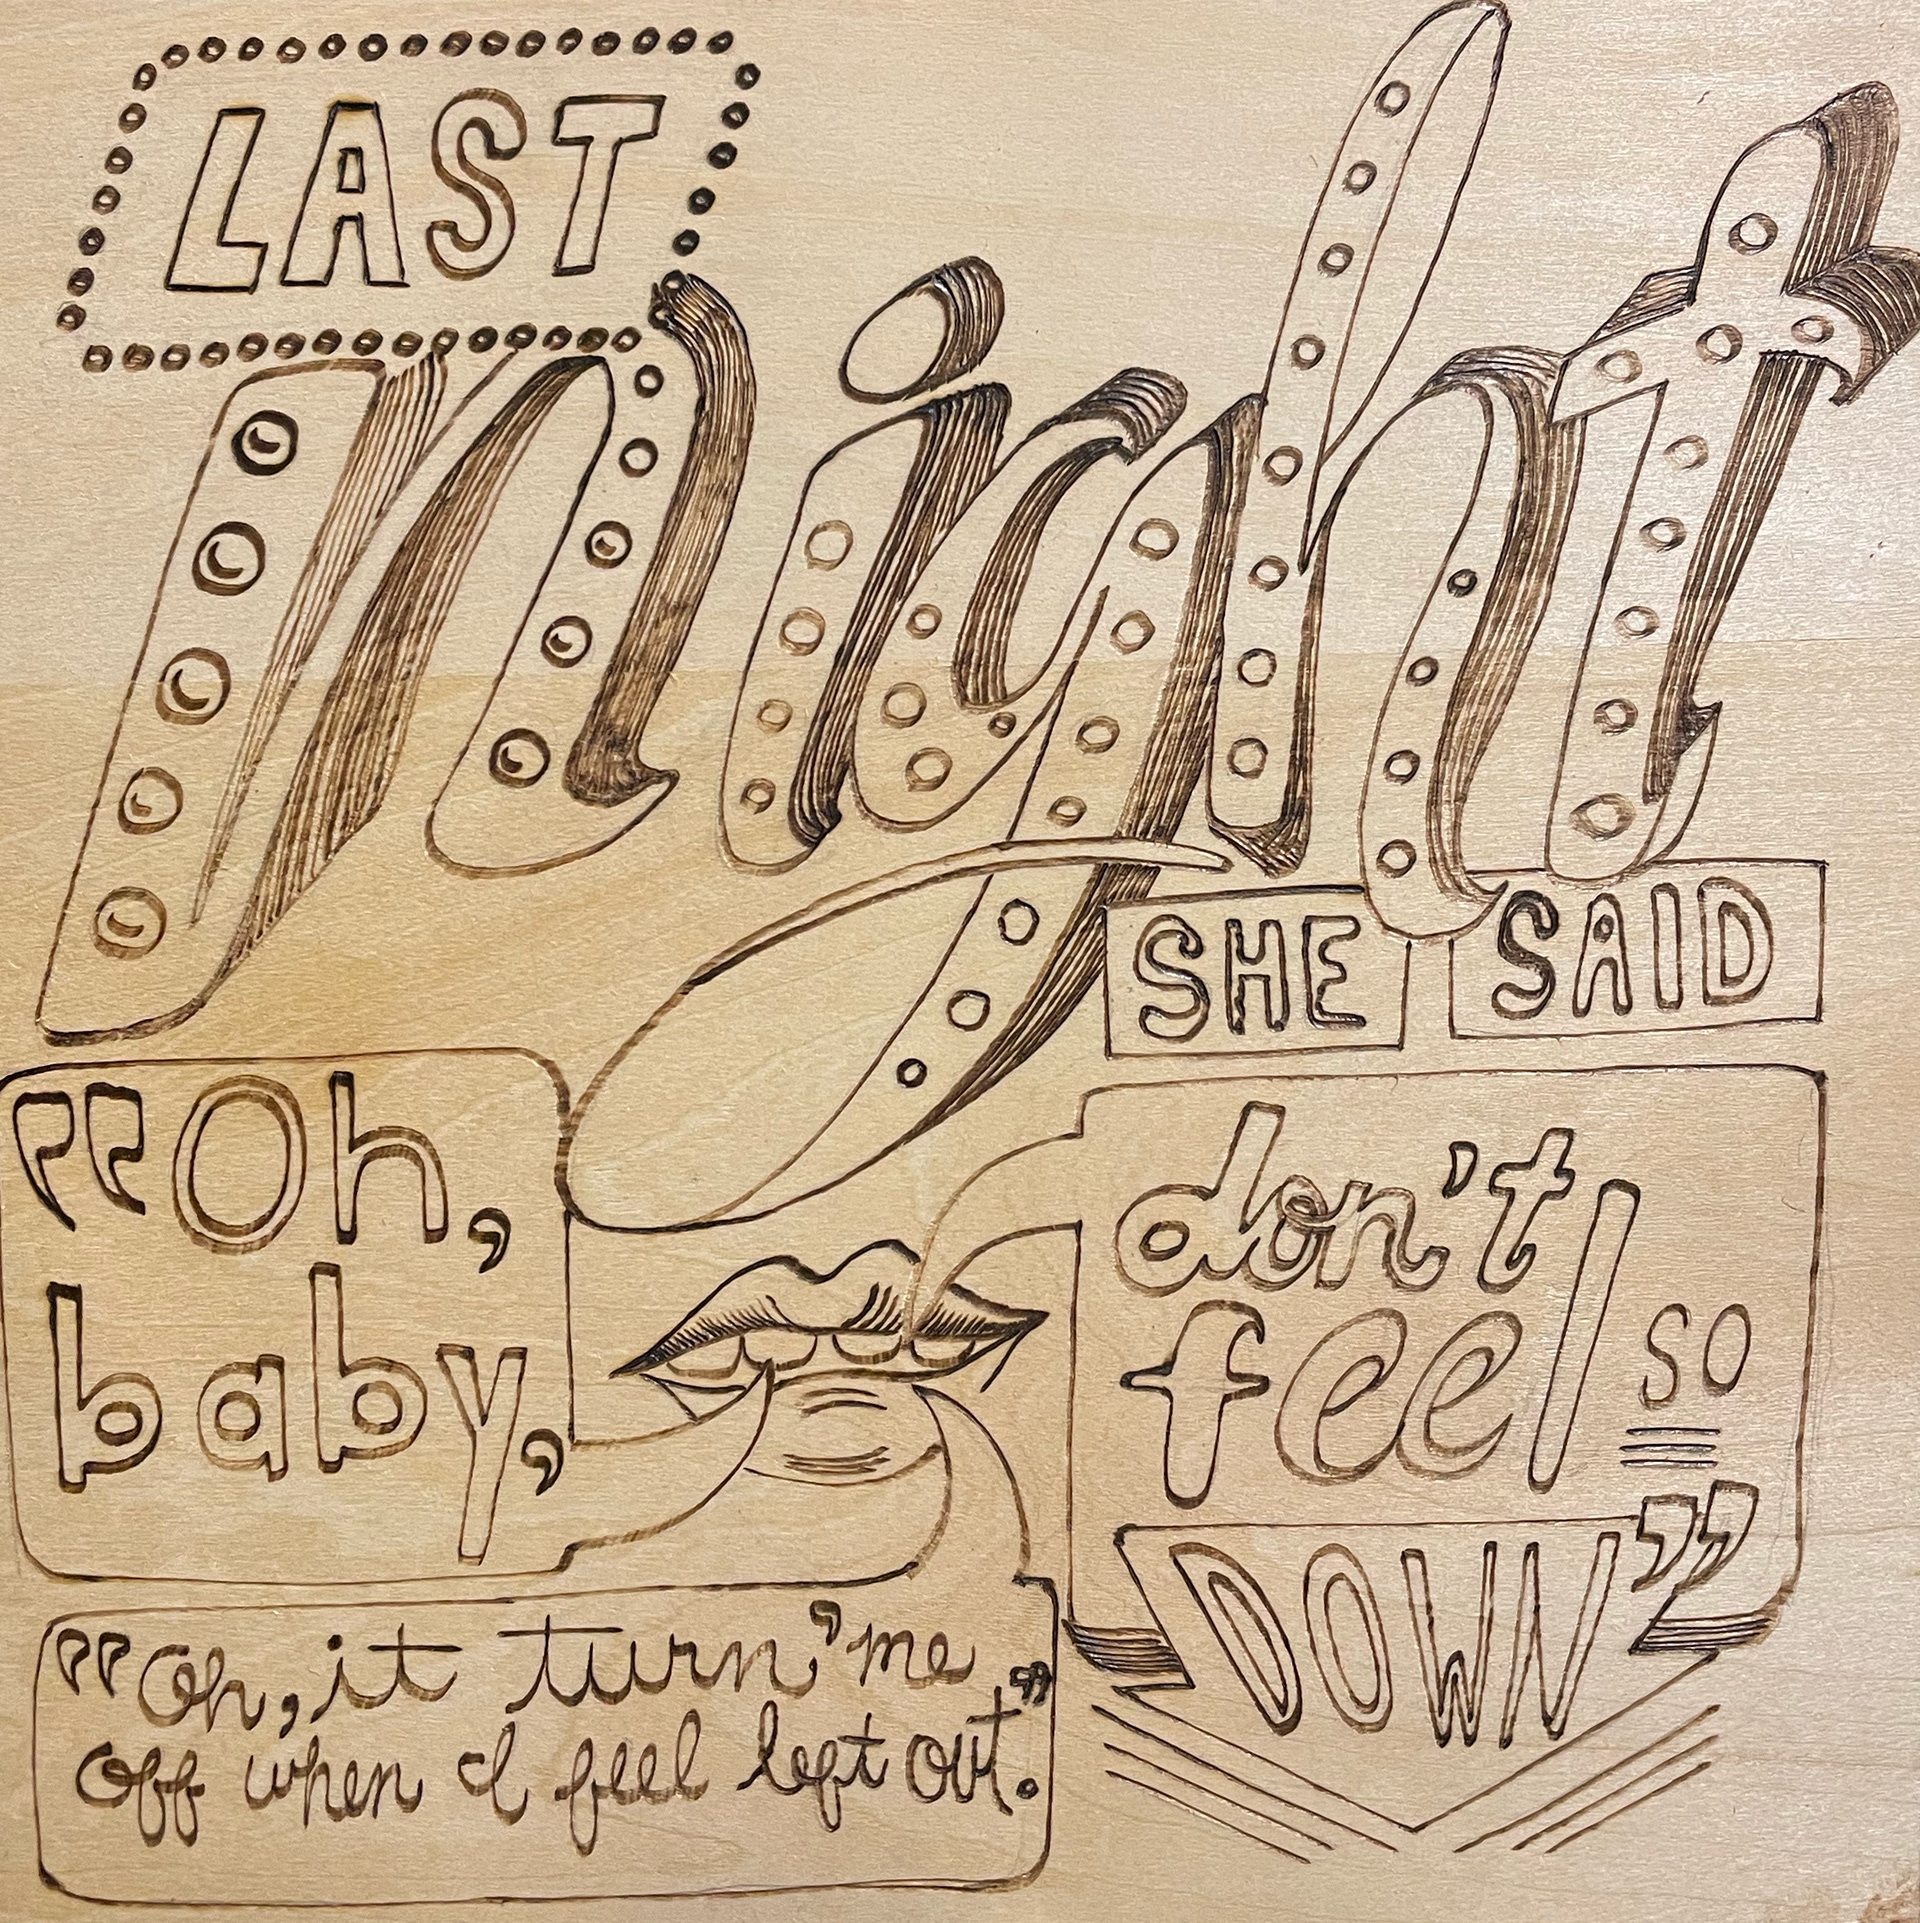 LAST
night
SHE SAID
"Oh,
baby,
don't
feel so
DOWN"
"Oh, it turn' me
off when I feel left out."